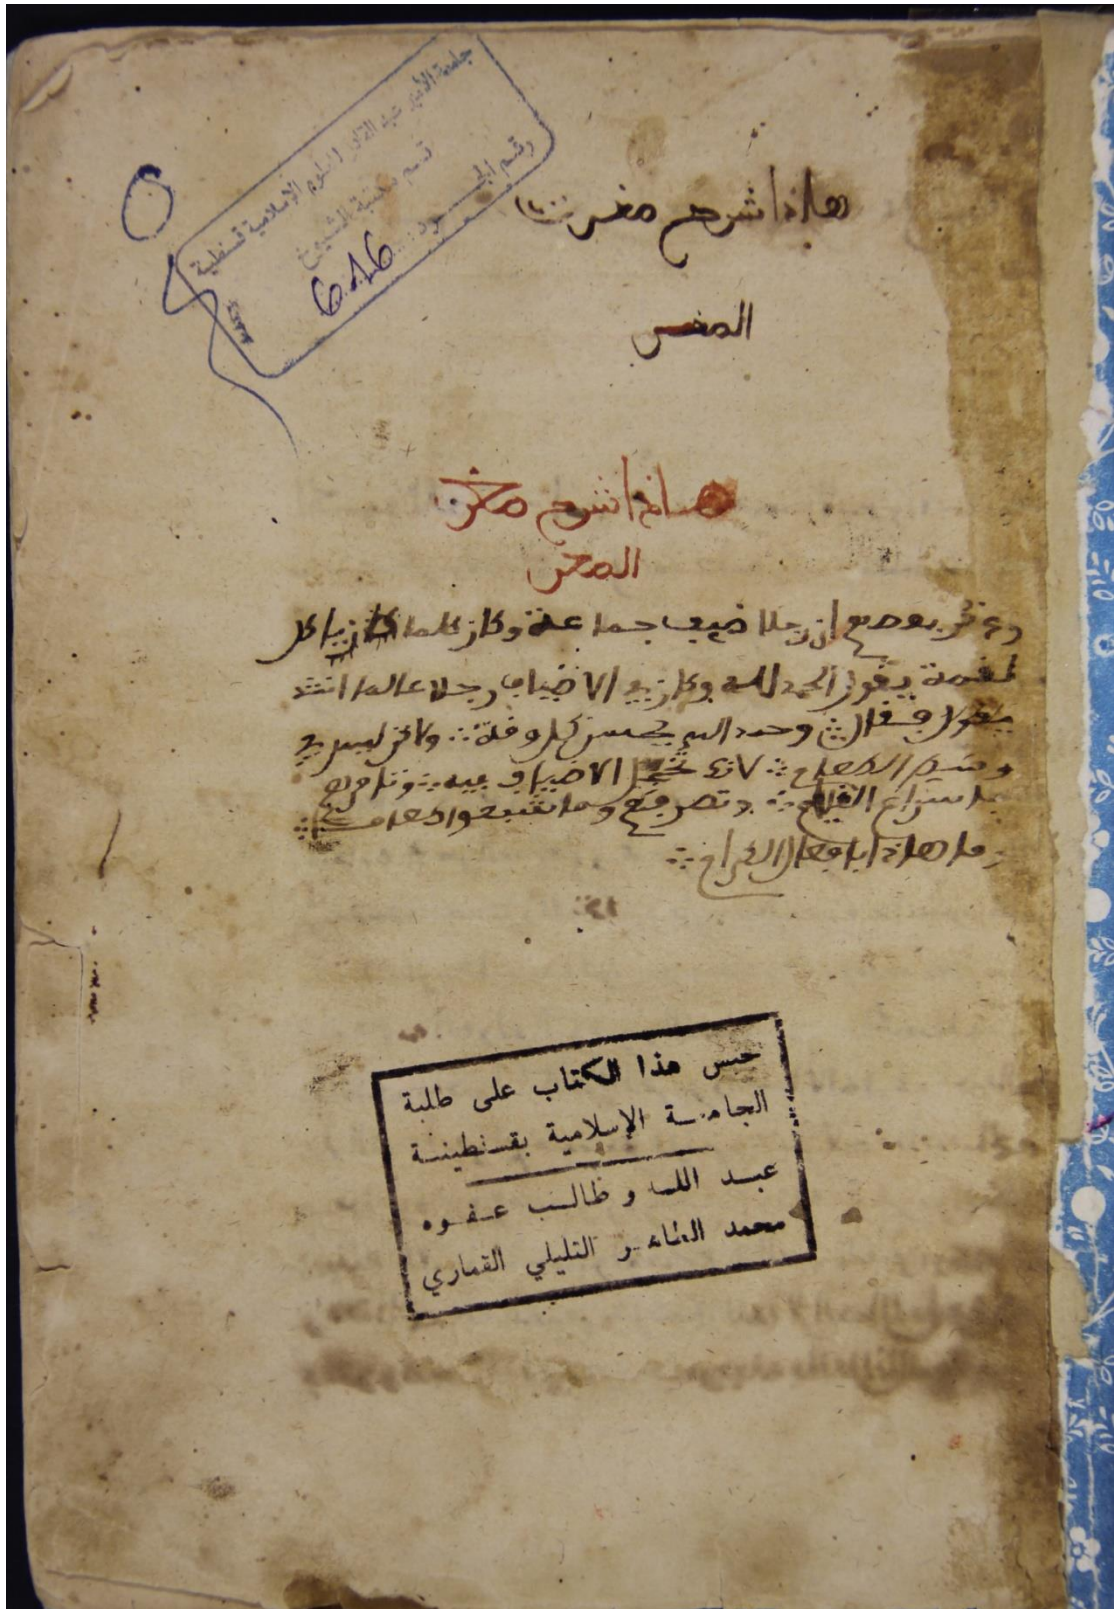 جامعة الأمير عبد القادر للعلوم الإسلامية قسنطينة
قسم مكتبة الشيوخ
رقم الجـــرد: 616
هاذا شرح
هاذا شرح
ان رجلا ضيف جماعة وكان كلما
لقمة يقول الحمد لله وكان بيد الاضياف رجلا عالما انشد
يقول فقال وحمد الله يحسن كل وقت ولاكن ليس
الطعام لانك تخجل الاضياف فيه وتامرهم
باسراع القيام وتصرفهم وما شبعوا طعام
وما هاذا بافعال الكرام
حبس هذا الكتاب على طلبة
الجامعة الإسلامية بقسنطينة
عبد الله و طالب عفوه
محمد الطاهر التليلي القماري